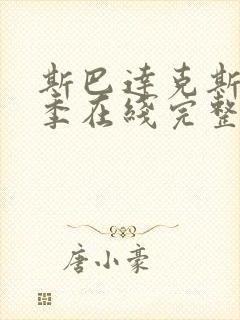 斯巴达克斯
季在线完整
唐小豪